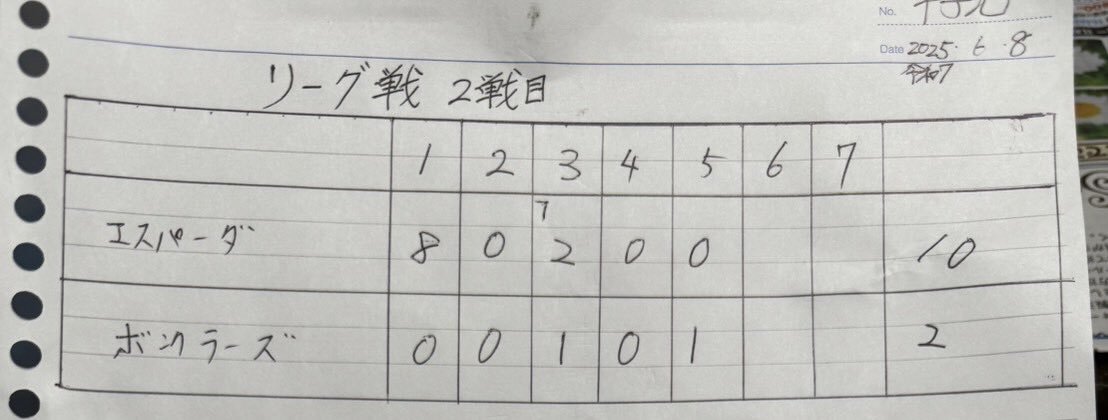 No.
Date 2025.6.8
令和7
リーグ戦 2戦目
1 2 3 4 5 6 7
7
エスパーダ 8 0 2 0 0 10
ボンクラーズ 0 0 1 0 1 2